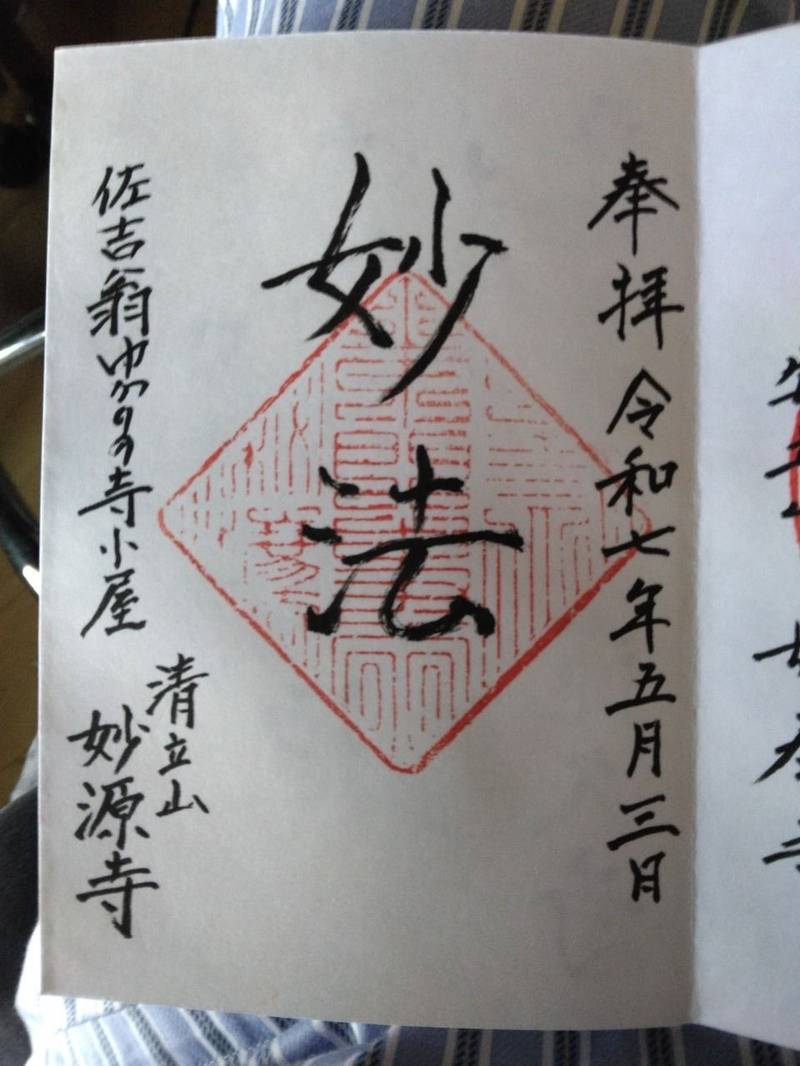 奉拝 令和七年五月三日
妙法
佐吉翁ゆかりの寺小屋
清立山
妙源寺